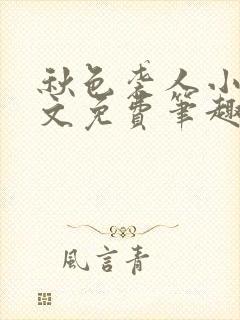 秋色孪人小
文免費筆趣
風言青